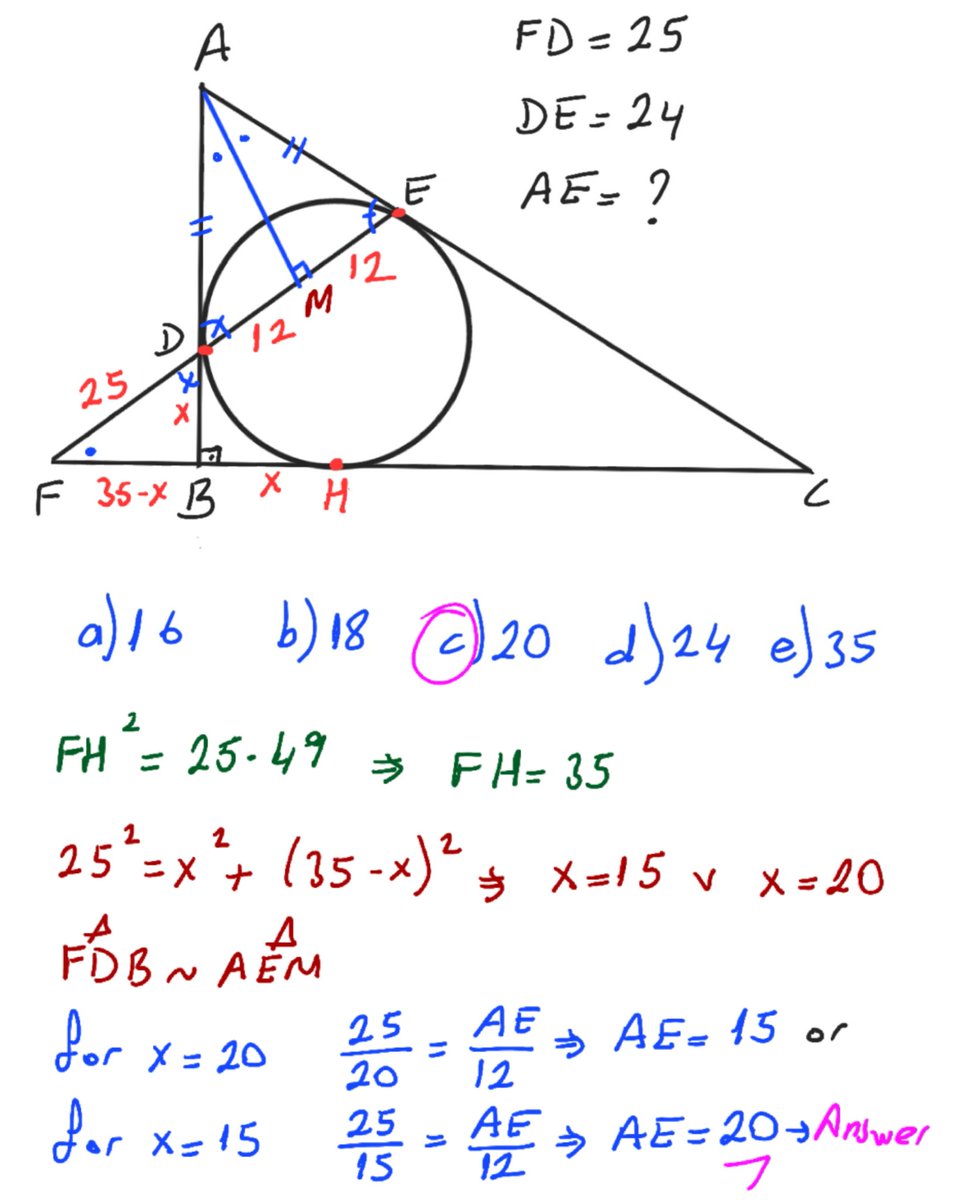 A
FD = 25
DE = 24
AE = ?
E
12
M
D
x
12
25
x
x
F
35-x
B
x
H
C
a) 16 b) 18 c) 20 d) 24 e) 35
FH² = 25·49 ⇒ FH = 35
25² = x² + (35-x)² ⇒ x=15 ∨ x=20
FDB ~ AEM
for x = 20 25/20 = AE/12 ⇒ AE = 15 or
for x = 15 25/15 = AE/12 ⇒ AE = 20 → Answer